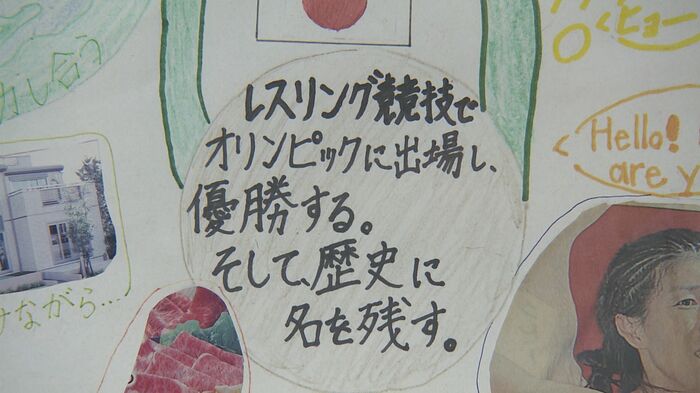 レスリング競技で
オリンピックに出場し、
優勝する。
そして、歴史に
名を残す。
力し合う
けながら…
ヒョー
Hello!
are y